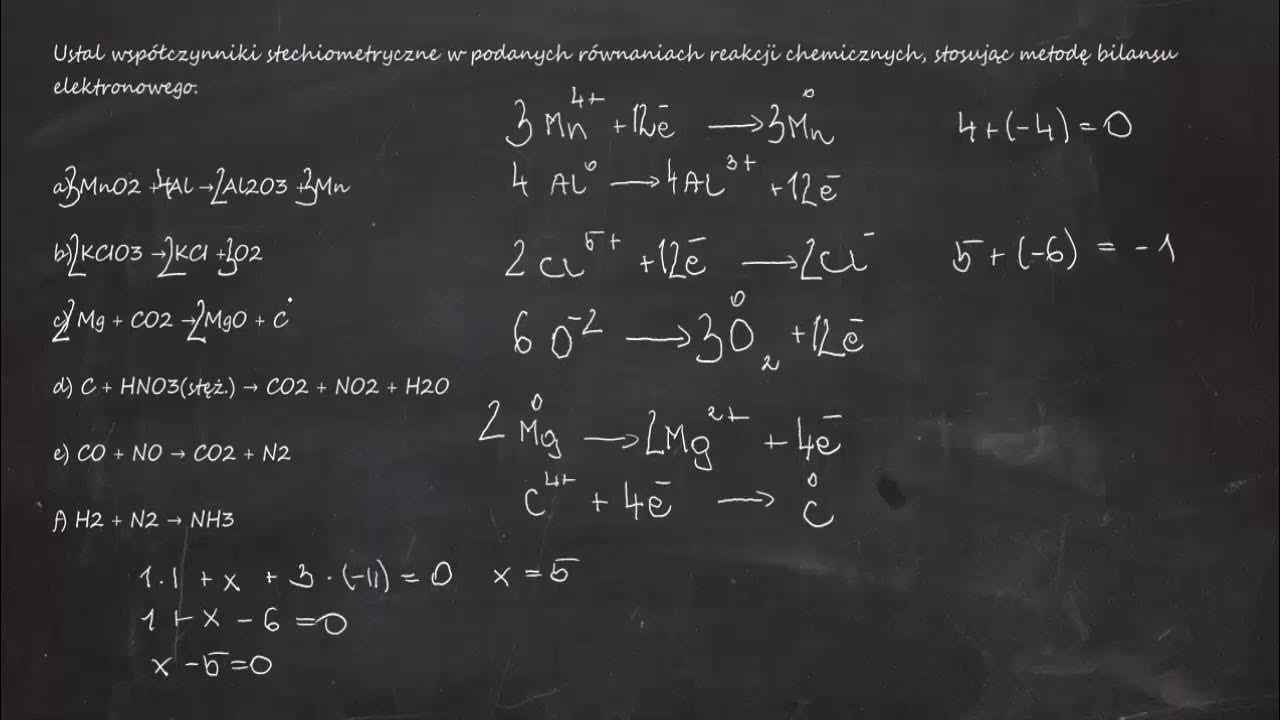 Ustal współczynniki stechiometryczne w podanych równaniach reakcji chemicznych, stosując metodę bilansu
elektronowego.
a) 3 MnO2 + 4Al → 2Al2O3 + 3Mn
b) 2KClO3 → 2KCl + 3O2
c) 2Mg + CO2 → 2MgO + C
d) C + HNO3(stęż.) → CO2 + NO2 + H2O
e) CO + NO → CO2 + N2
f) H2 + N2 → NH3
1·I + x + 3·(-II) = 0 x = 5
1 + x - 6 = 0
x - 5 = 0
3Mn⁴⁺ + 12e⁻ → 3Mn⁰
4Al⁰ → 4Al³⁺ + 12e⁻
2Cl⁵⁺ + 12e⁻ → 2Cl⁻
6O⁻² → 3O₂⁰ + 12e⁻
2Mg⁰ → 2Mg²⁺ + 4e⁻
C⁴⁺ + 4e⁻ → C⁰
4+(-4) = 0
5+(-6) = -1